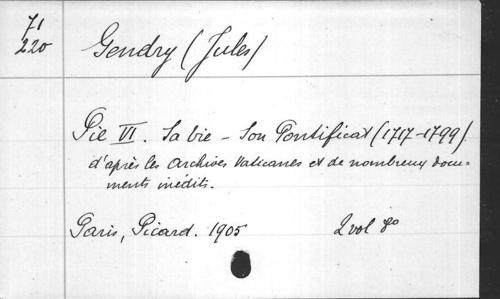 71
220
Gendry (Jules)
Pie VI. Sa vie - Son Pontificat (1717-1799)
d'après les Archives Vaticanes et de nombreux docu=
ments inédits.
Paris, Picard. 1905 2 vol 8o